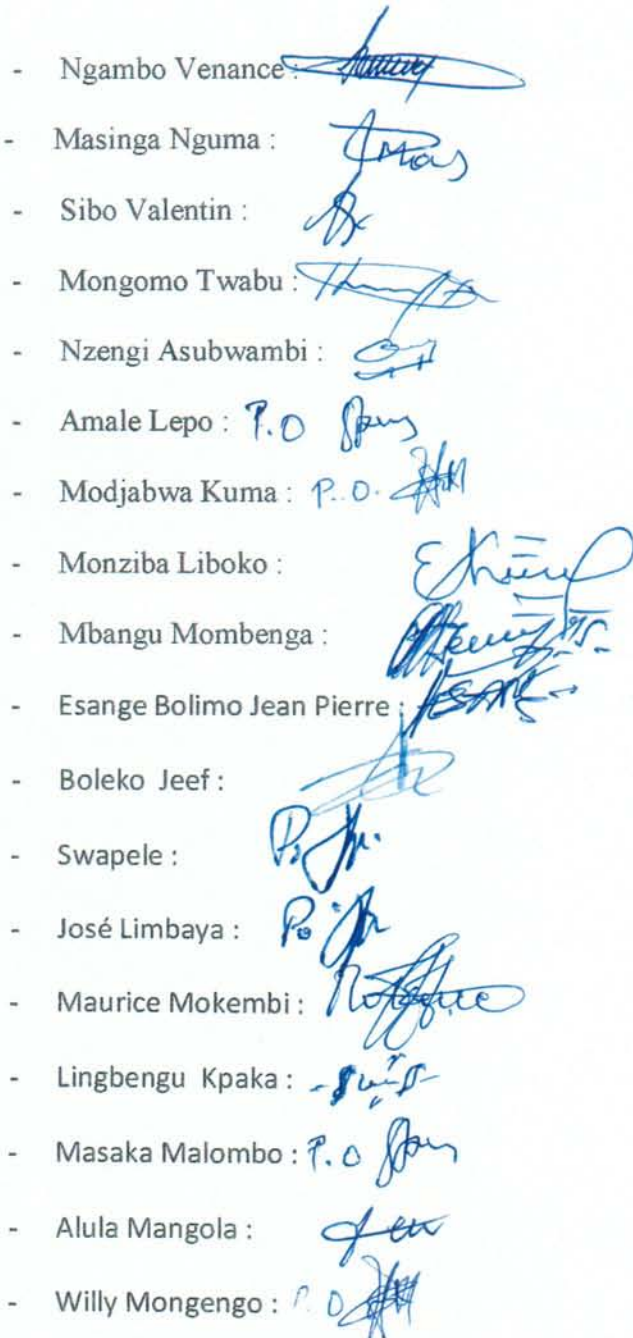 - Ngambo Venance :
- Masinga Nguma :
- Sibo Valentin :
- Mongomo Twabu :
- Nzengi Asubwambi :
- Amale Lepo : P.O
- Modjabwa Kuma : P.O.
- Monziba Liboko :
- Mbangu Mombenga :
- Esange Bolimo Jean Pierre :
- Boleko Jeef :
- Swapele :
- José Limbaya : Po
- Maurice Mokembi :
- Lingbengu Kpaka :
- Masaka Malombo : P.O
- Alula Mangola :
- Willy Mongengo : P.O